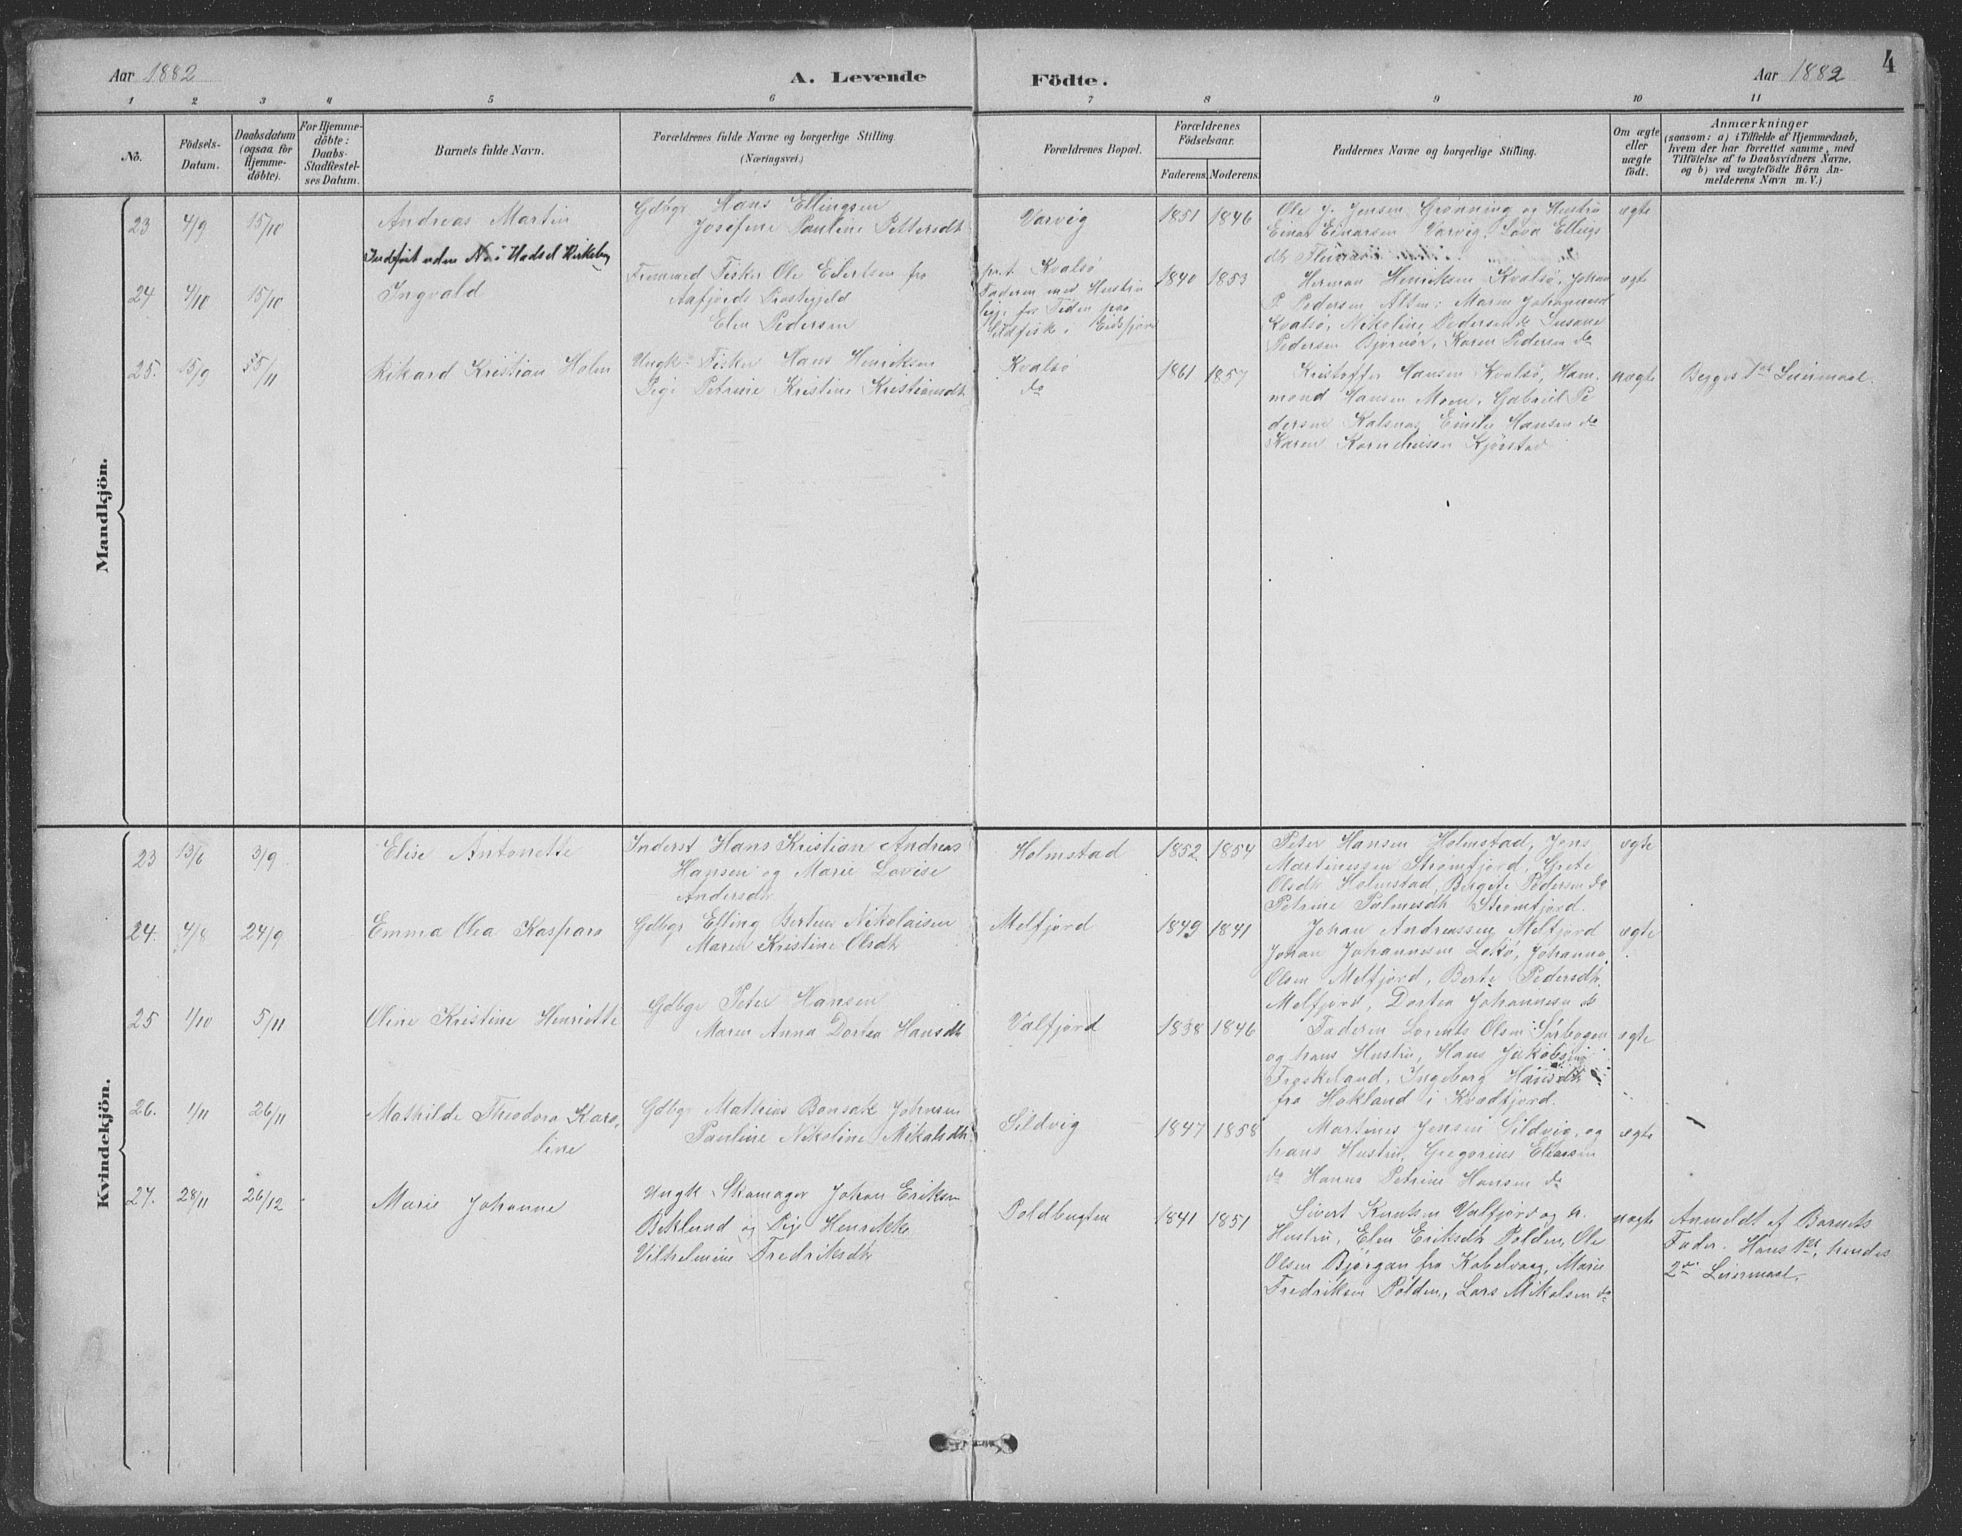 Aar 1882
A. Levende Födte.
Aar 1882
4
1 2 3 4 5 6 7 8 9 10 11
No.
Födsels-Datum.
Daabsdatum (ogsaa for Hjemme-döbte).
For Hjemme-döbte: Daabs-Stadfæstel-ses Datum.
Barnets fulde Navn.
Forældrenes fulde Navne og borgerlige Stilling.
(Næringsvei.)
Forældrenes Bopæl.
Forældrenes Födselsaar.
Faderens. Moderens.
Faddernes Navne og borgerlige Stilling.
Om ægte eller uægte födt.
Anmærkninger
(saasom: a) i Tilfælde af Hjemmedaab,
hvem der har forrettet samme, med
Tilföielse af to Daabsvidners Navne,
og b) ved uægtefödte Börn An-
melderens Navn m. V.)
Mandkjön.
23 4/9 15/10 Andreas Martin
Gdbgr Hans Ellingsen
Josefine Pauline Pettersdt
Varvig 1851 1846
Ole J. Jensen Grønning og Hustru
Einar Einarsen Varvig, Lova Ellings
dt
ægte
Indført uden No i Hadsel Kirkebog
24 4/10 15/10 Ingvald
Fremmed Fisker Ole Eilertsen fra
Aafjords Præstegjeld
Elen Pedersen
p.t. Kvalsø
Faderen med Hustru
ligg. for Tiden paa
Sildfisk i Eidsfjord
1840 1853
Herman Henriksen Kvalsø, Johan
P. Pedersen Alten, Maren Johannesd
Kvalsø, Nikoline Pedersen & Susane
Pedersen Bjørnør, Karen Pedersen do
ægte
25. 15/9 5/11 Rikard Kristian Holm
Ungk. Fisker Hans Henriksen
Pige Petrine Kristine Kristiansdt
Kvalsø
do
1861 1857
Kristoffer Hansen Kvalsø, Ham-
mond Hansen Moen, Gabriel Pe
dersen Kalsnes, Emilie Hansen do
Karen Korneliusen Kjørstad
uægte
Begges 1ste Leiermaal.
Kvindekjön.
23 13/6 3/9 Elise Antonette
Inderst Hans Kristian Andreas
Hansen og Marie Lovise
Andersdt
Holmstad 1852 1854
Peter Hansen Holmstad, Jens
Martinessen Strømfjord, Grete
Olsdt Holmstad, Bergite Pedersen do
Petrine Palmesdt Strømfjord
ægte
24. 4/8 24/9 Emma Olea Kaspara
Gdbgr Elling Berteus Nikolaisen
Maren Kristine Olsdt
Melfjord 1849 1841
Johan Andreassen Melfjord
Johan Johannesen Loksø, Johanna
Olsen Melfjord, Berte Pedersdt
Melfjord, Dortea Johannesen do
ægte
25 1/10 5/11 Oline Kristine Henriette
Gdbgr Peter Hansen
Maren Anna Dortea Hansdt
Valfjord 1838 1846
Faderen Lorents Olsen Sørbogen
og hans Hustru, Hans Jakobsen
Frøskeland, Ingeborg Hansdt
fra Hokland i Kvædfjord.
ægte
26. 1/11 26/11 Mathilde Theodora Karo,
line
Gdbgr Mathias Bonsak Johnsen
Pauline Nikoline Mikalsdt
Sildvig 1847 1858
Martenes Jensen Sildvig, og
hans Hustru, Gregorius Eliassen
do Hanna Petrine Hansen do
ægte
27. 28/11 26/12 Marie Johanne
Ungk. Skomager Johan Eriksen
Beklund og Pige Henrikke
Vilhelmine Fredriksdt
Poldbugten 1841 1851
Sivert Knutsen Valfjord og h.
Hustru, Elen Eriksdt Polden, Ole
Olsen Bjørgan fra Kabelvaag, Marie
Fredriksen Polden, Lars Mikalsen do
uægte
Anmeldt af Barnets
Fader. Hans 1ste, hendes
2det Leiermaal.